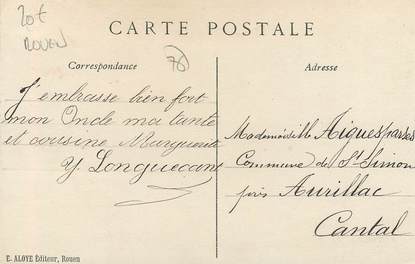 20€
ROUEN
CARTE POSTALE
Correspondance
76
Adresse
J'embrasse bien fort
mon Oncle ma tante
et cousine Marguerite
Y. Longuecane
Mademoiselle Aigueparses
Commune de St Simon
près Aurillac
Cantal
E. ALOYE Éditeur, Rouen